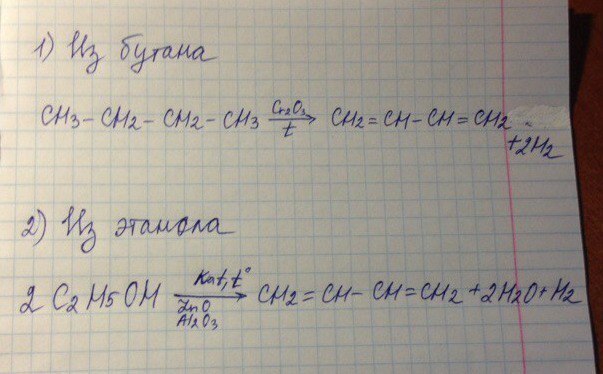 1) Из бутана
CH3-CH2-CH2-CH3 Cr2O3 t → CH2=CH-CH=CH2
+2H2
2) Из этанола
2 C2H5OH Kat, t° ZnO Al2O3 → CH2=CH-CH=CH2+2H2O+H2